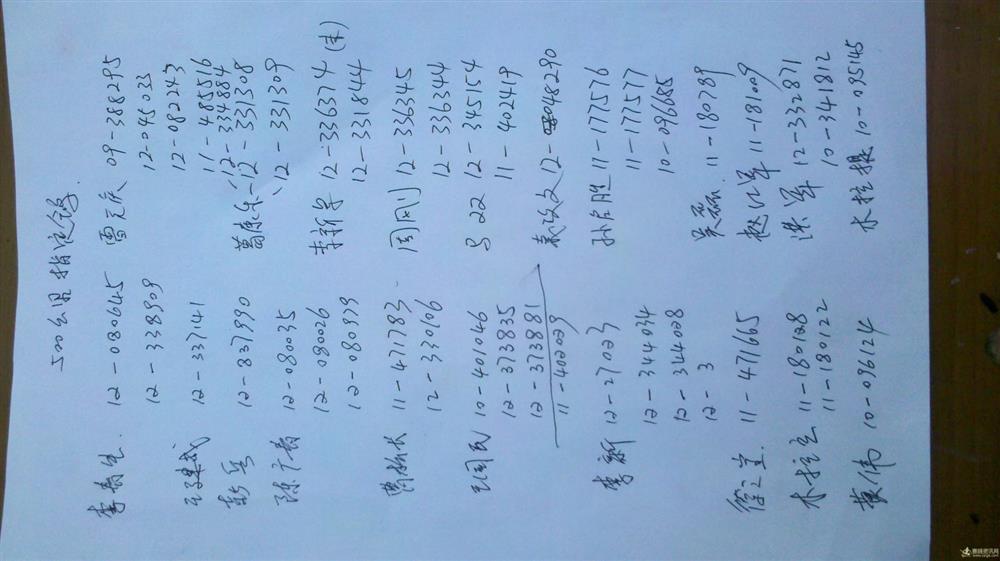 500公里指定鸽
李寿生. 12-080645
12-338909
12-337141
彭兵 12-837990
陈广寿 12-080035
12-080026
12-080979
11-471783
12-330106
王国民 10-401046
12-373835
12-373881
11-402029
李新 12-27023
12-344034
12-344028
12-3
徐之宝. 11-471665
木拉宝 11-180128
11-180122
黄伟 10-096124
雷云庆 09-388295
12-045033
12-082243
11-485516
12-334884
葛康乐 12-331308
12-331309
李新军 12-336374 (未)
12-331844
周风川 12-336345
12-336344
S 22 12-345154
11-402419
袁改文 12-048290
孙长胜 11-177576
11-177577
10-096685
吴磊. 11-180789
赵江军 11-181009
洪军 12-332871
10-341812
木拉提 10-095145
赛鸽资讯网